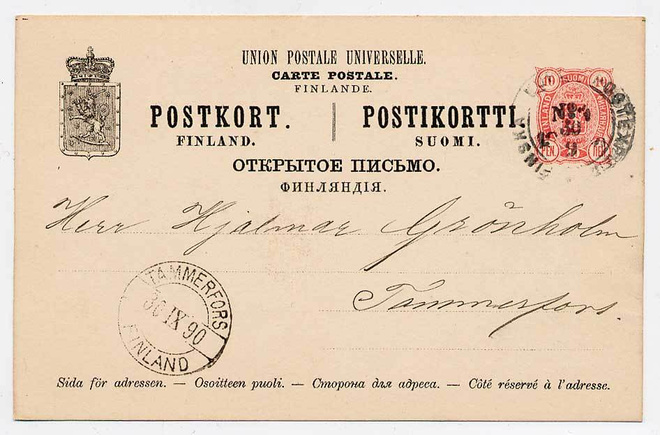 UNION POSTALE UNIVERSELLE.
CARTE POSTALE.
FINLANDE.
POSTKORT. | POSTIKORTTI.
FINLAND. SUOMI.
ОТКРЫТОЕ ПИСЬМО.
ФИНЛЯНДІЯ.
10 SUOMI
PEN PEN
30
9
Herr Hjalmar Grönholm
Tammerfors.
TAMMERFORS
30 IX 90
FINLAND
Sida för adressen. — Osoitteen puoli. — Сторона для адреса. — Côté réservé à l'adresse.